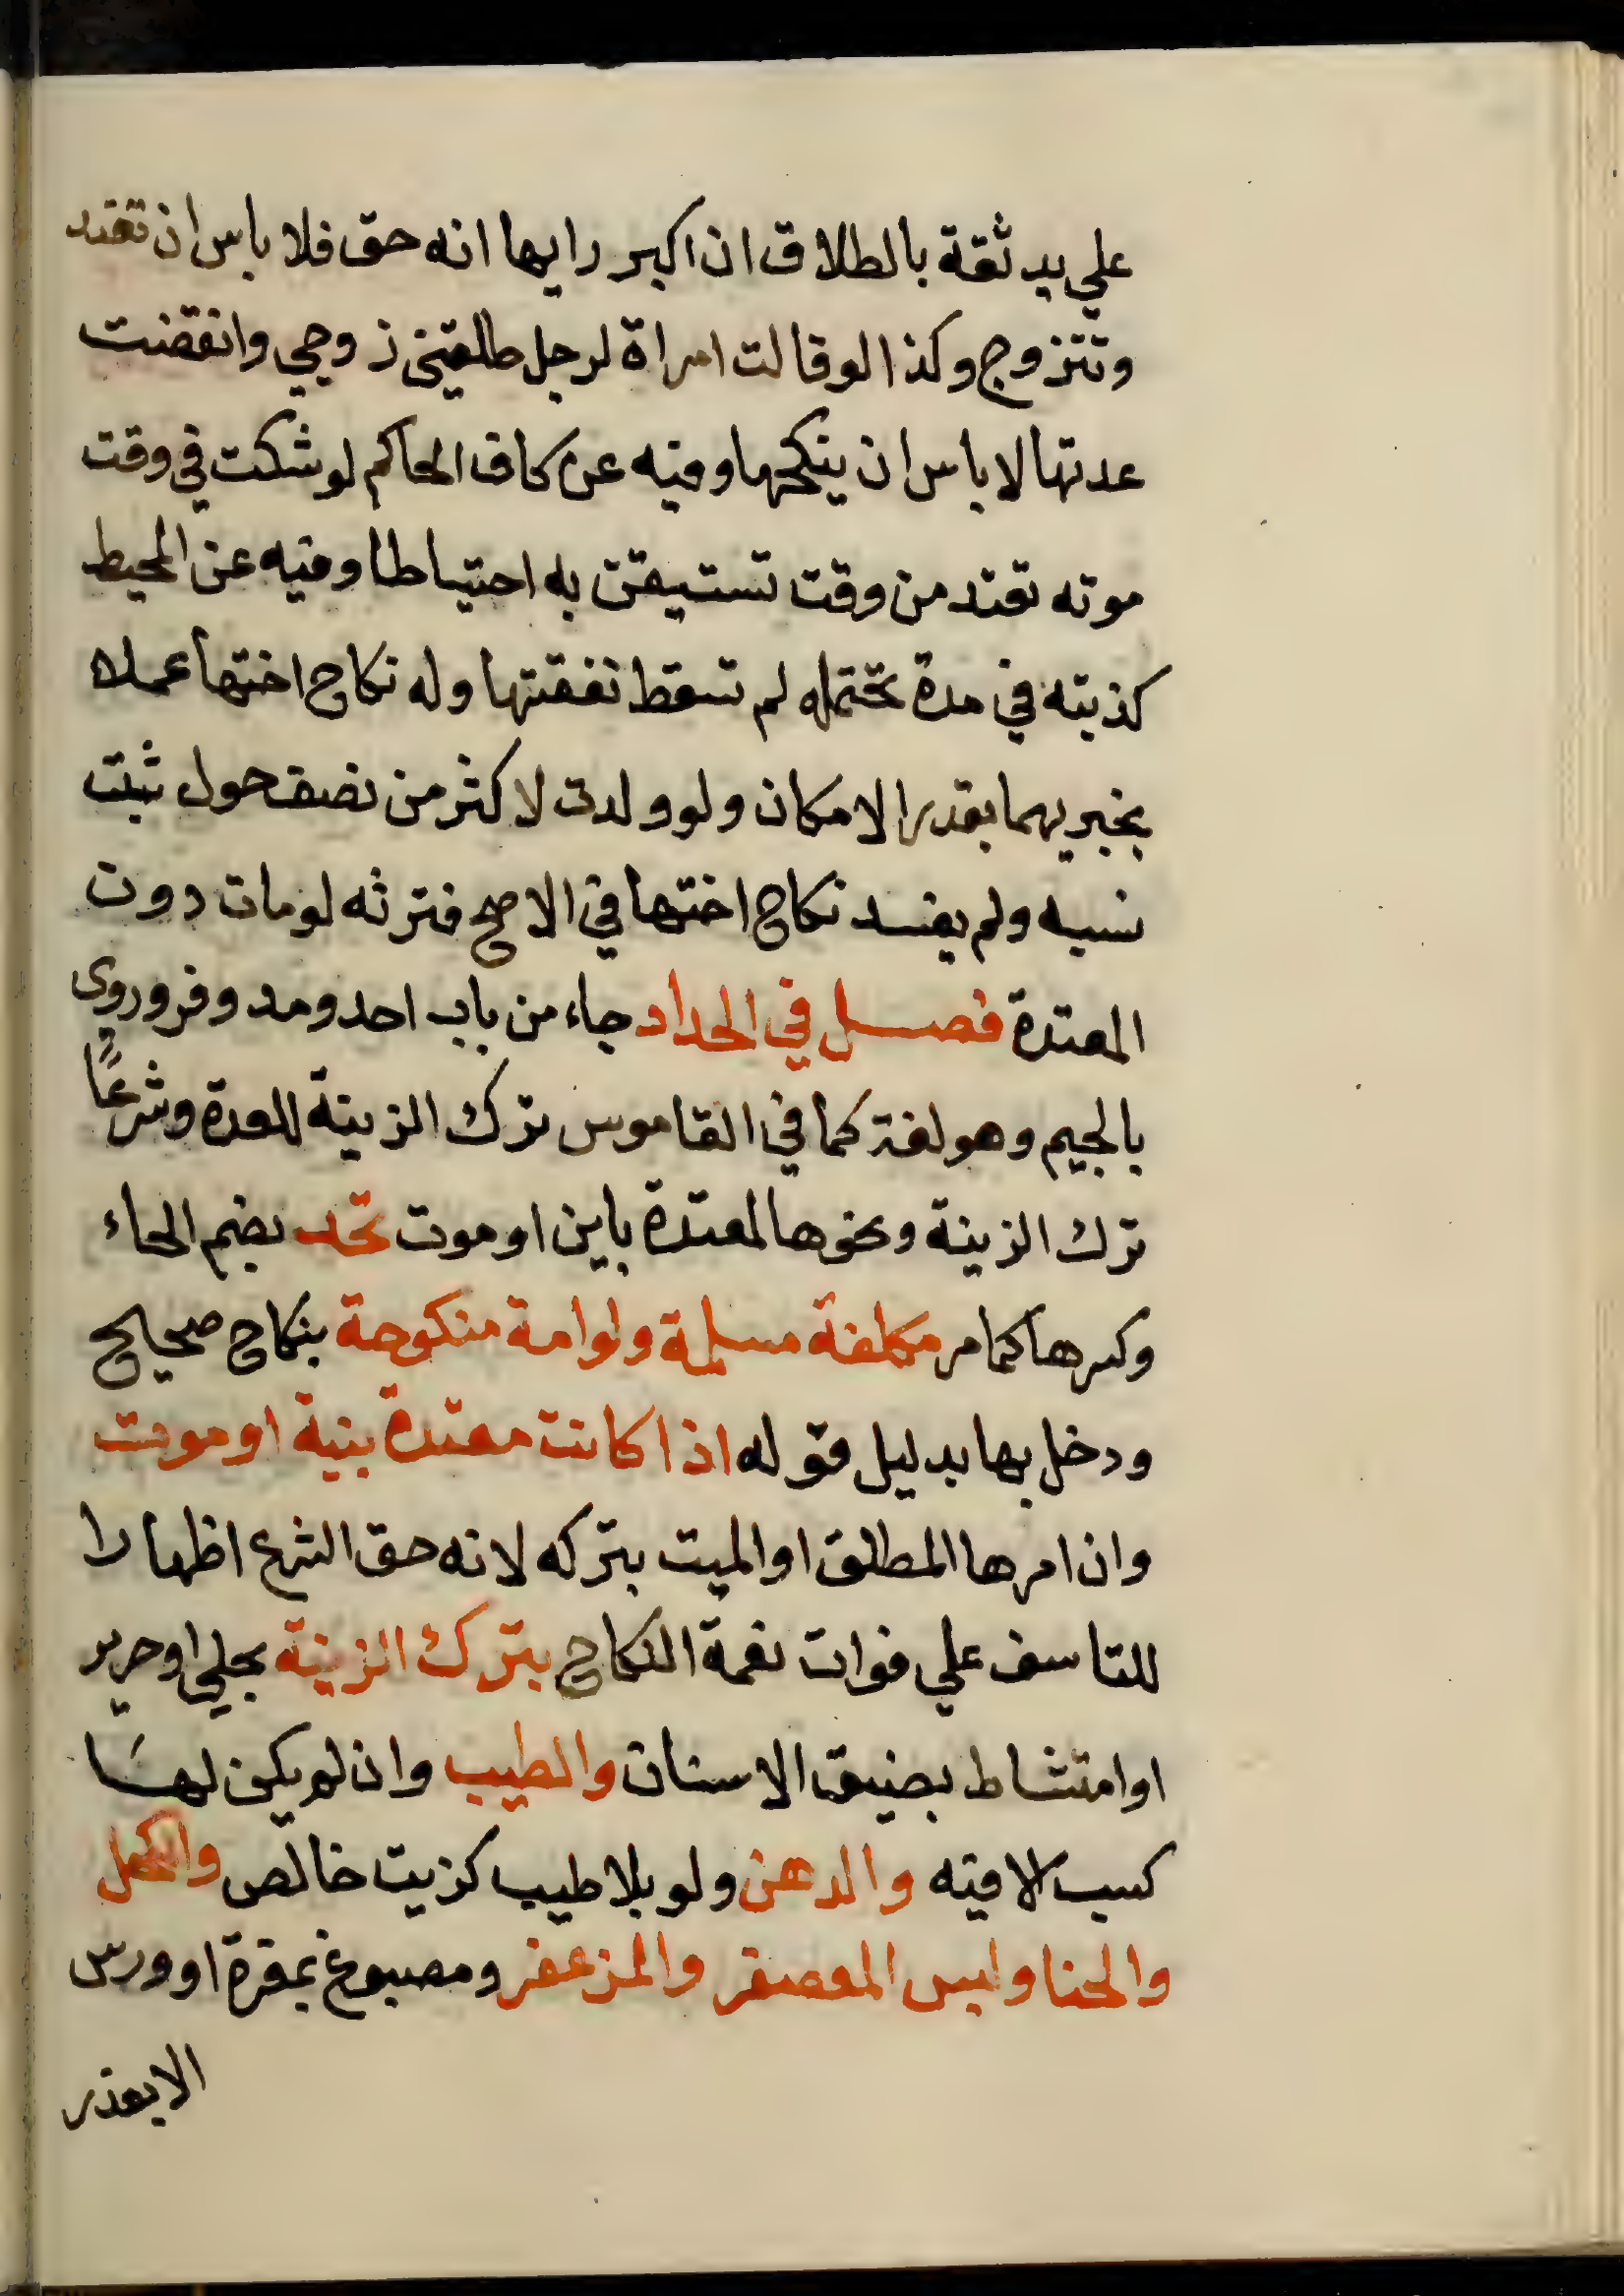 علي يد ثقة بالطلاق ان اكبر رايها انه حق فلا باس ان تعتد
وتتزوج وكذا لو قالت امراة لرجل طلقني زوجي وانقضت
عدتها لا باس ان ينكحها وفيه عن كافي الحاكم لو شكت في وقت
موته تعتد من وقت تستيقن به احتياطا وفيه عن المحيط
كذبته في مدة تحتمله لم تسقط نفقتها وله نكاح اختها عملا
بخبريهما بقدر الامكان ولو ولدت لاكثر من نصف حول ثبت
نسبه ولم يفسد نكاح اختها في الاصح فترثه لو مات دون
المعتدة فصل في الحداد جاء من باب احد ومد وفر وروي
بالجيم وهو لغة كما في القاموس ترك الزينة للعدة وشرعًا
ترك الزينة ونحوها لمعتدة باين او موت تحد بضم الحاء
وكسرها كما مر مكلفة مسلمة ولو امة منكوحة بنكاح صحيح
ودخل بها بدليل قوله اذا كانت معتدة بتة او موت
وان امرها المطلق او الميت بتركه لانه حق الشرع اظهارا
للتاسف علي فوات نعمة النكاح بترك الزينة بحلي او حرير
او امتشاط بضيق الاسنان والطيب وان لم يكن لها
كسب الا فيه والدهن ولو بلا طيب كزيت خالص والكحل
والحنا ولبس المعصفر والمزعفر ومصبوغ بمغرة او ورس
الا بعذر